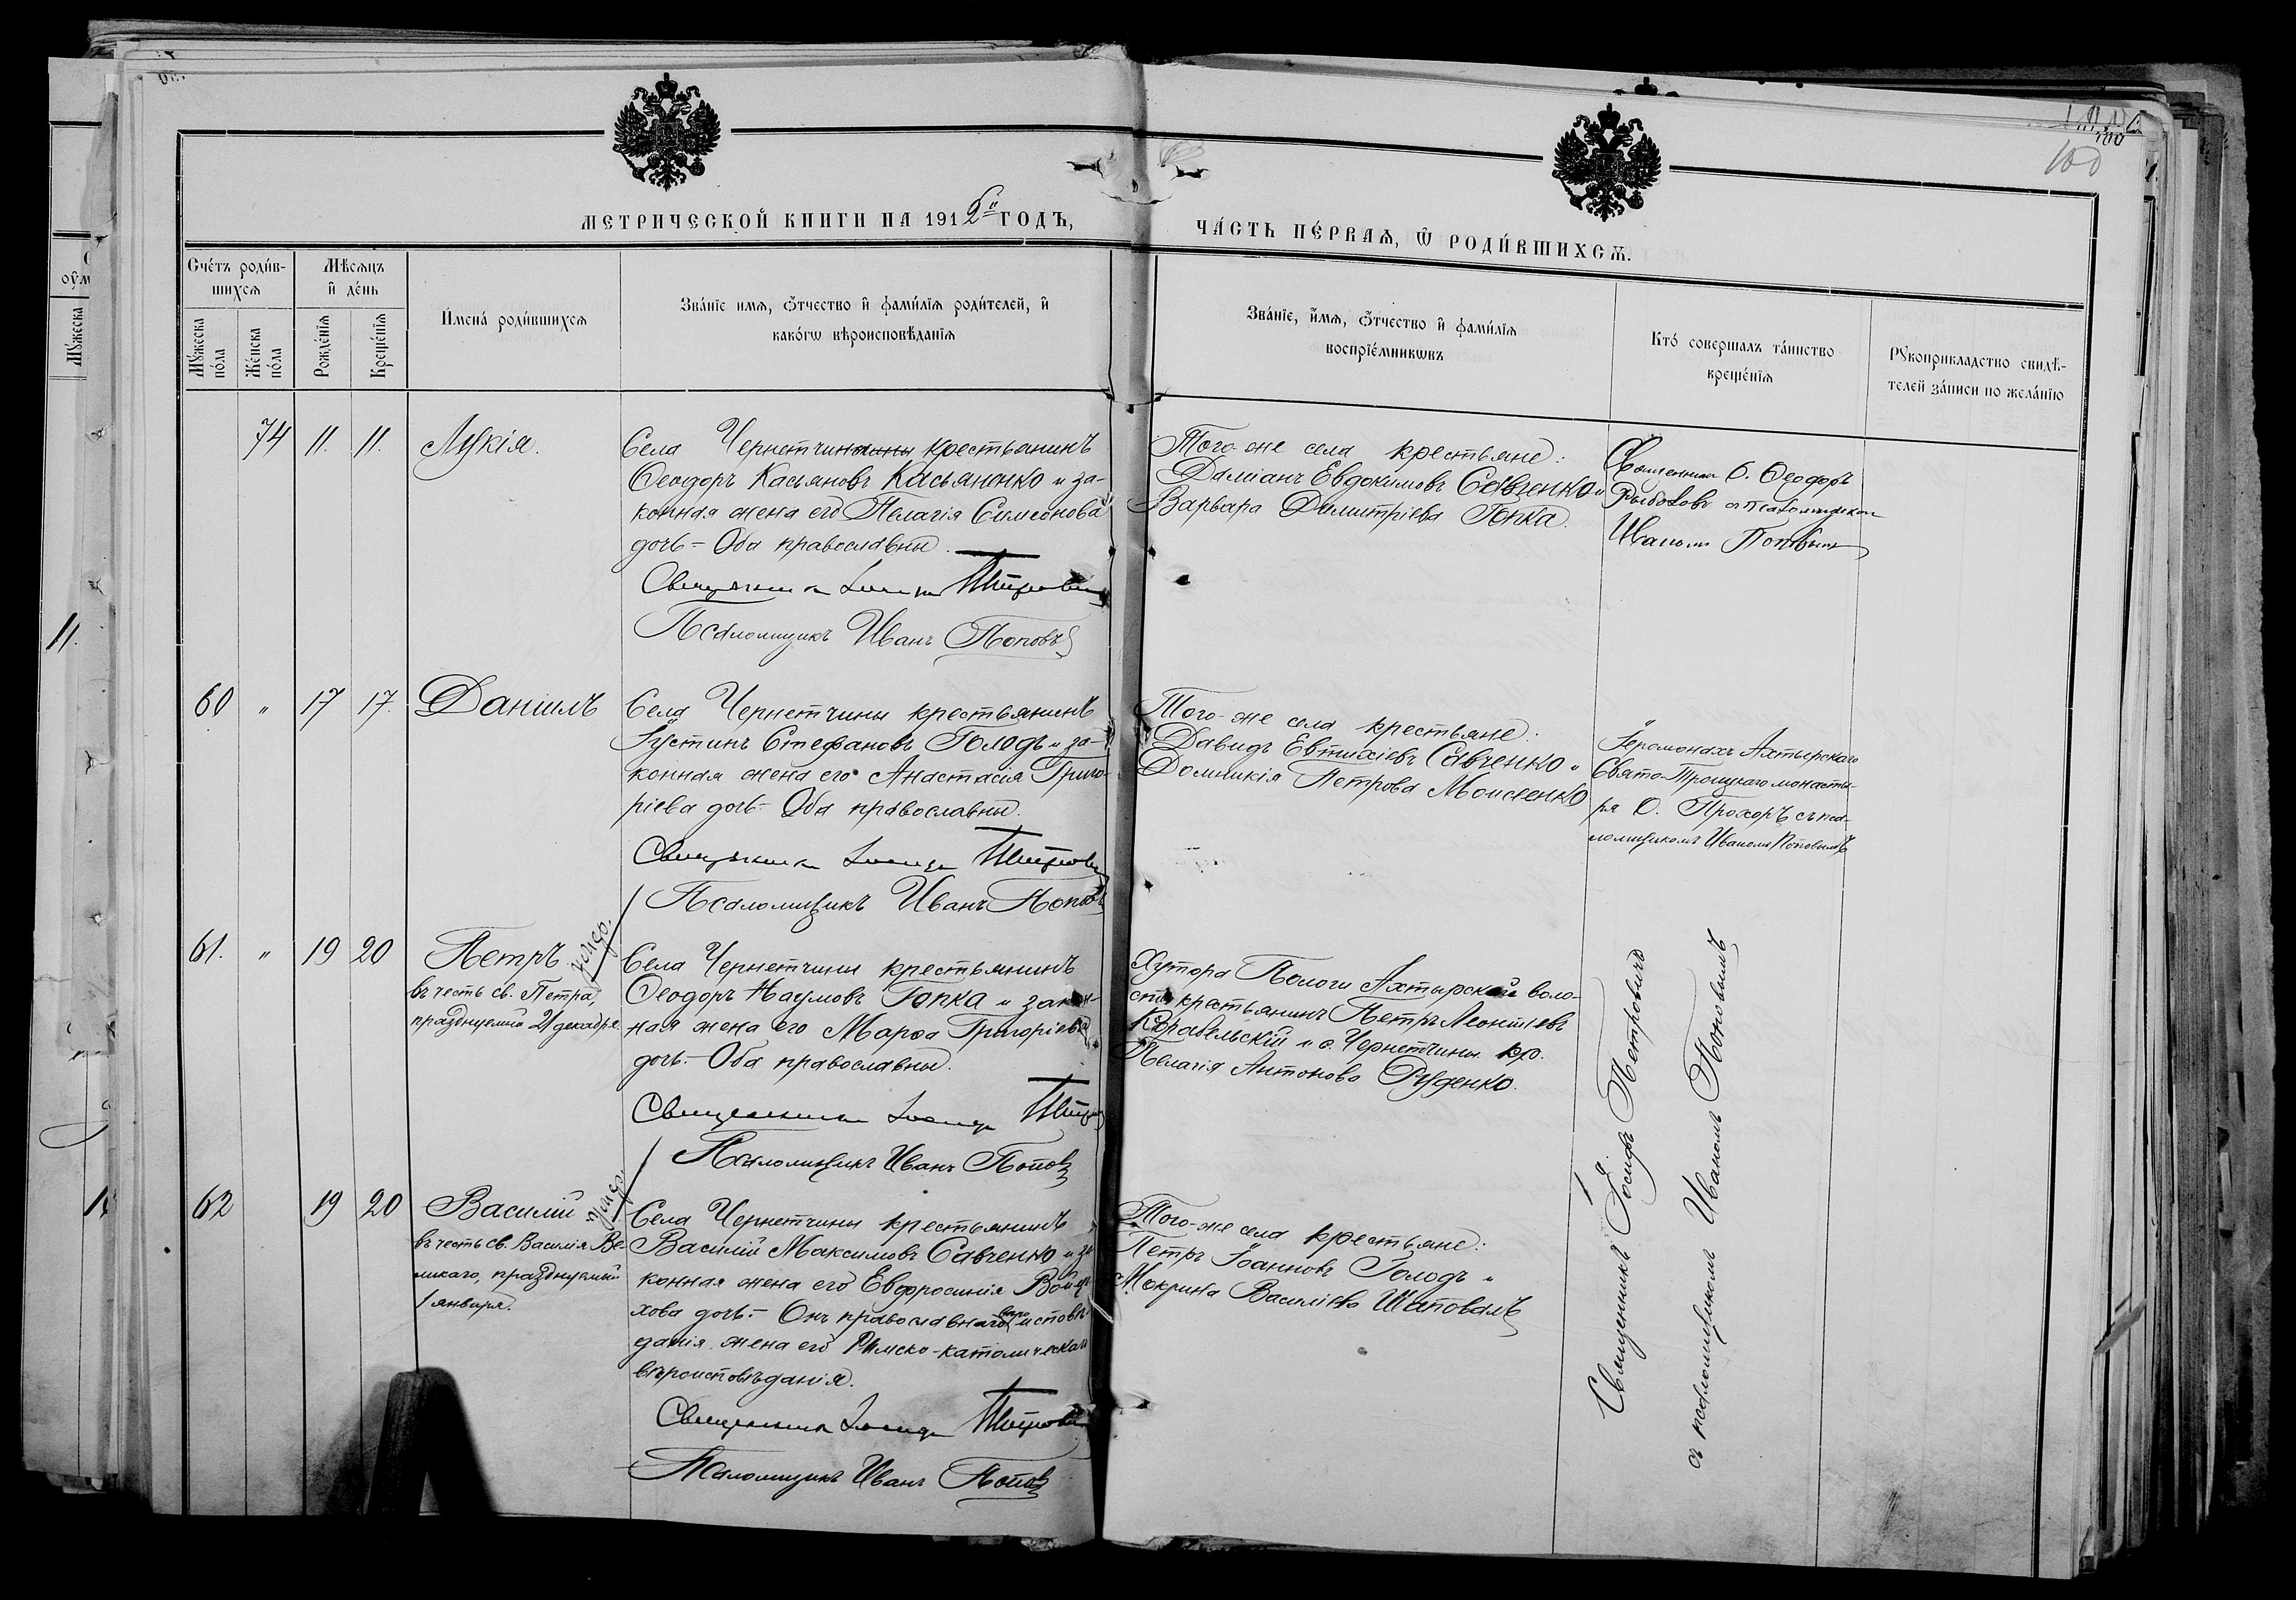 100
МЕТРИЧЕСКОЙ КНИГИ НА 1912й ГОДЪ,
ЧА́СТЬ ПЕ́РВАѦ, Ѿ РОДИ́ВШИХСѦ.
Сче́тъ роди́в-
шихсѧ
Мꙋжеска по́ла
Же́нска по́ла
Мѣсѧцъ
и҆ де́нь
Рожде́нїѧ
Креще́нїѧ
И҆мена́ роди́вшихсѧ
Зва́нїе имѧ, ѻ҆́тчество и҆ фами́лїѧ роди́телей, и҆
како́гѡ вѣроисповѣ́данїѧ
Зва́нїе, и҆́мѧ, ѻ҆́тчество и҆ фами́лїѧ
воспрїе́мникѡвъ
Кто́ соверша́лъ та́инство
креще́нїѧ
Рꙋкоприкладство свидѣ́-
телей за́писи по жела́нїю
74 11. 11. Лукія.
Села Чернетчины крестьянинъ
Ѳеодоръ Касьяновъ Касьяненко и за-
конная жена его Пелагія Симеонова
дочь - Оба православны.
Священникъ Іосифъ Петровичъ
Псаломщикъ Иванъ Поповъ
Того-же села крестьяне:
Даміанъ Евдокимовъ Савченко и
Варвара Димитріева Гопка.
Священникъ О. Ѳеодоръ
Рыболовъ съ псаломщикомъ
Иваномъ Поповымъ
60 " 17 17. Даніилъ
Села Чернетчины крестьянинъ
Іустинъ Стефановъ Голодъ и за-
конная жена его Анастасія Григо-
ріева дочь - Оба православны.
Священникъ Іосифъ Петровичъ
Псаломщикъ Иванъ Поповъ
Того-же села крестьяне:
Давидъ Евтихіевъ Савченко и
Домникія Петрова Моисеенко
Іеромонахъ Ахтырскаго
Свято-Троицкаго монасты-
ря О. Прохоръ съ пса-
ломщикомъ Иваномъ Поповымъ
61. " 19 20 Петръ
въ честь св. Петра,
празднуемаго 21 декабря.
Села Чернетчины крестьянинъ
Ѳеодоръ Наумовъ Гопка и закон-
ная жена его Марѳа Григоріева
дочь - Оба православны.
Священникъ Іосифъ Петровичъ
Псаломщикъ Иванъ Поповъ
Хутора Пологи Ахтырской воло-
сти крестьянинъ Петръ Леонтіевъ
Корабельскій и с. Чернетчины кр.
Пелагія Антонова Руденко.
62 19 20 Василій
въ честь св. Василія Ве-
ликаго, празднуемый
1 января.
Села Чернетчины крестьянинъ
Василій Максимовъ Савченко и за-
конная жена его Евфросинія Войце-
хова дочь - Онъ православнаго вѣроисповѣ-
данія, жена его Римско-католическаго
вѣроисповѣданія.
Священникъ Іосифъ Петровичъ
Псаломщикъ Иванъ Поповъ
Того-же села крестьяне:
Петръ Іоанновъ Голодъ и
Макрина Василіева Шаповалъ
Священникъ Іосифъ Петровичъ
съ псаломщикомъ Иваномъ Поповымъ